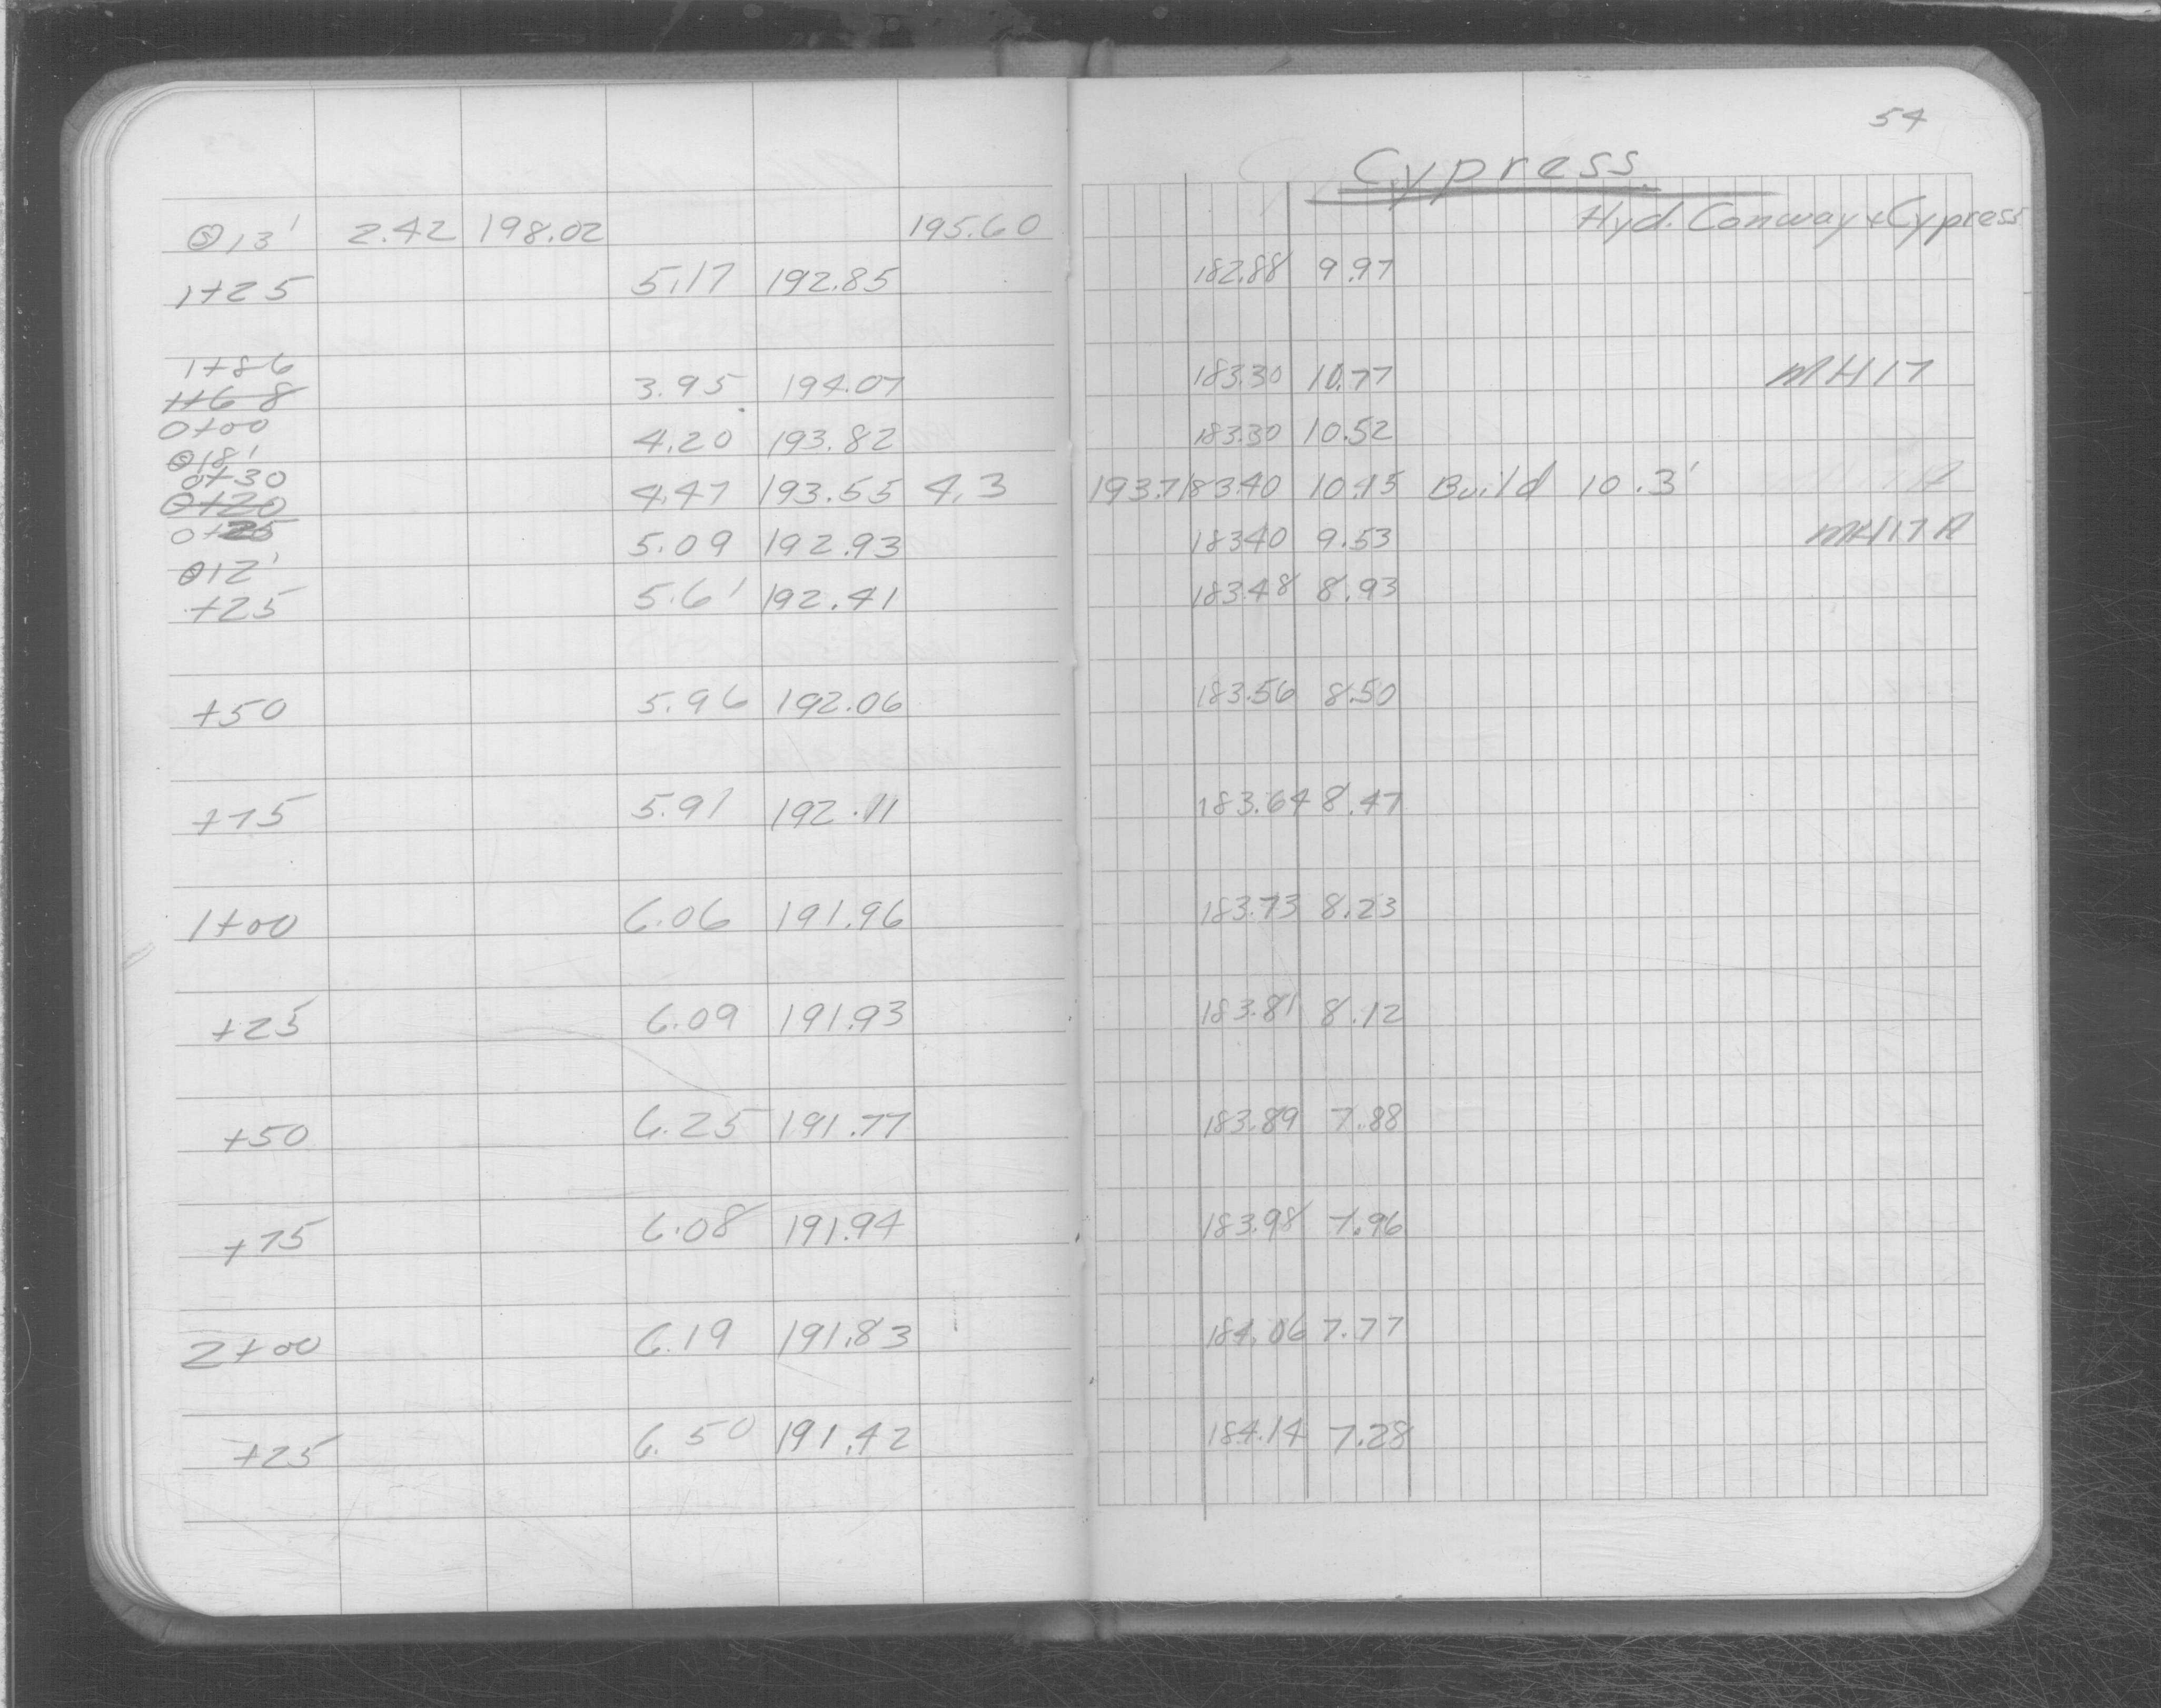 54
Cypress.
Ⓢ13' 2.42 198.02 195.60 Hyd. Conway + Cypress
1+25 5.17 192.85 182.88 9.97
1+86
1+68 3.95 194.07 183.30 10.77 MH17
0+00 4.20 193.82 183.30 10.52
Ⓢ18'
0+30 4.47 193.55 4.3 193.7 183.40 10.15 Build 10.3'
0+20
0+25 5.09 192.93 183.40 9.53 MH17A
Ⓢ12'
+25 5.61 192.41 183.48 8.93
+50 5.96 192.06 183.56 8.50
+75 5.91 192.11 183.64 8.47
1+00 6.06 191.96 183.73 8.23
+25 6.09 191.93 183.81 8.12
+50 6.25 191.77 183.89 7.88
+75 6.08 191.94 183.98 7.96
2+00 6.19 191.83 184.06 7.77
+25 6.50 191.42 184.14 7.28